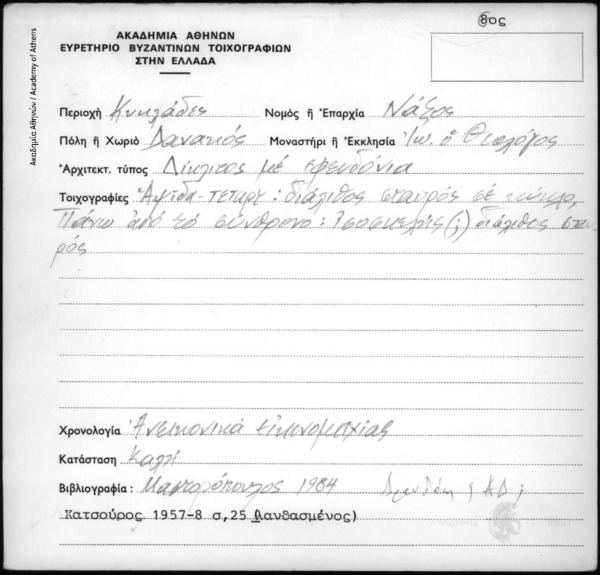 8ος
ΑΚΑΔΗΜΙΑ ΑΘΗΝΩΝ
ΕΥΡΕΤΗΡΙΟ ΒΥΖΑΝΤΙΝΩΝ ΤΟΙΧΟΓΡΑΦΙΩΝ
ΣΤΗΝ ΕΛΛΑΔΑ
Ακαδημία Αθηνών / Academy of Athens
Περιοχή Κυκλάδες Νομός ἤ Ἐπαρχία Νάξος
Πόλη ἤ Χωριό Δανακός Μοναστήρι ἤ Ἐκκλησία Ἰω. ὁ Θεολόγος
Ἀρχιτεκτ. τύπος Δίκλιτος μέ σφενδόνια
Τοιχογραφίες Ἀψίδα-τεταρτ: διάλιθος σταυρός σέ κύκλο,
Πάνω ἀπό τό σύνθρονο: Ἰσοσκελής (;) διάλιθος σταυ-
ρός
Χρονολογία Ἀνεικονικά Εἰκονομαχίας
Κατάσταση Καλή
Βιβλιογραφία: Μαστορόπουλος 1984 Δρανδάκη ἡ ΑΔ;
Κατσούρος 1957-8 σ,25 (λανθασμένος)